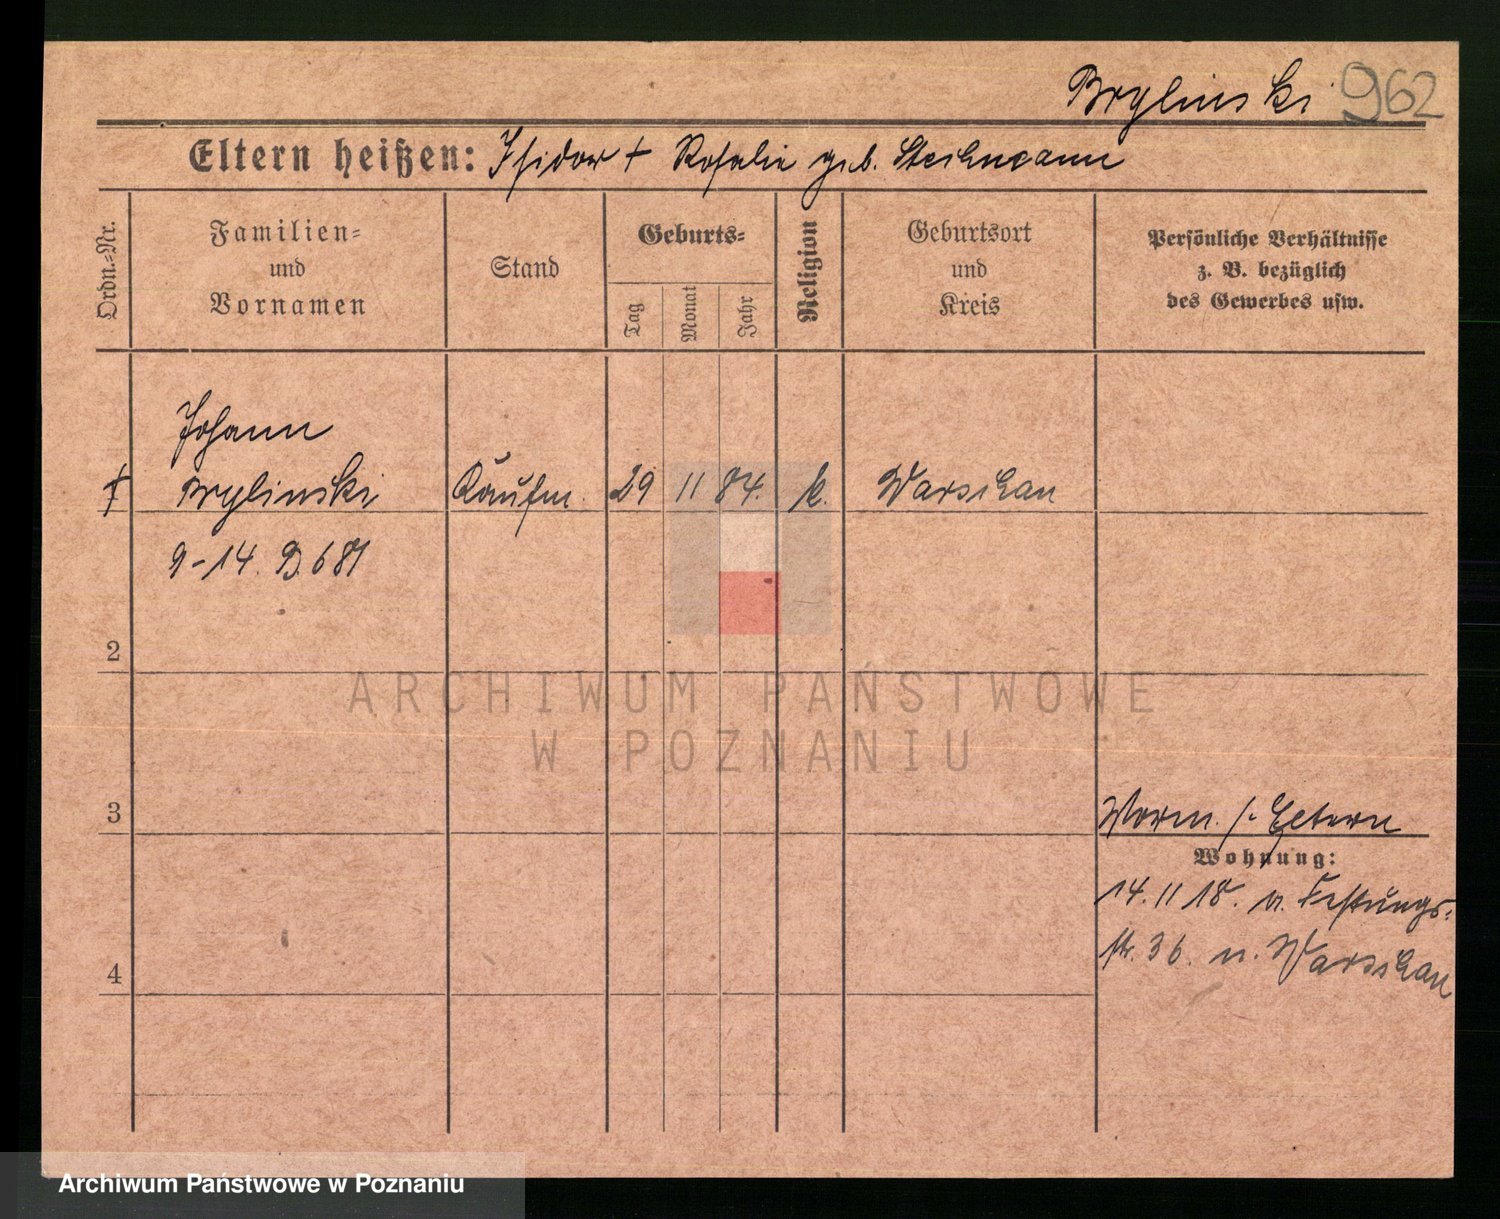 Brylinski 962
Eltern heißen: Isidor + Rosalie geb.
Ordn.-Nr.
Familien-
und
Vornamen
Stand
Geburts-
Tag
Monat
Jahr
Religion
Geburtsort
und
Kreis
Persönliche Verhältnisse
z. B. bezüglich
des Gewerbes usw.
Johann
Brylinski Kaufm. 29 11 84. k. Warschau
9-14. B. 681
2
ARCHIWUM PAŃSTWOWE
W POZNANIU
3
Vorm. s. Eltern
Wohnung:
14.11 18. v. Festungs-
str. 36. n. Warschau
4
Archiwum Państwowe w Poznaniu